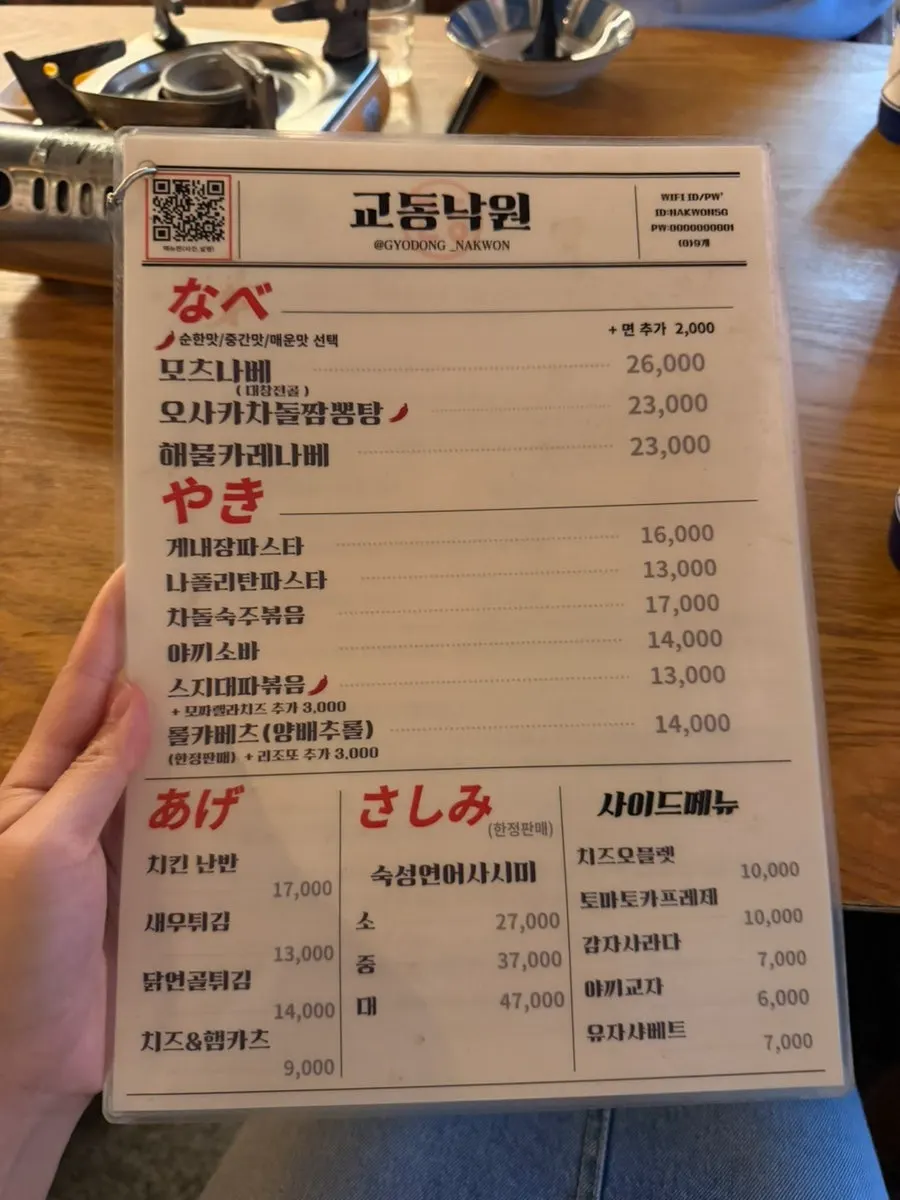 교동낙원
@GYODONG _NAKWON
WIFI ID/PW'
ID:NAKWON5G
PW:0000000001
(0)9개
なべ
순한맛/중간맛/매운맛 선택
+ 면 추가 2,000
모츠나베 26,000
(대창전골)
오사카차돌짬뽕탕 23,000
해물카레나베 23,000
やき
게내장파스타 16,000
나폴리탄파스타 13,000
차돌숙주볶음 17,000
야끼소바 14,000
스지대파볶음 13,000
+ 모짜렐라치즈 추가 3,000
롤캬베츠(양배추롤) 14,000
(한정판매) + 리조또 추가 3,000
あげ
치킨 난반
17,000
새우튀김
13,000
닭연골튀김
14,000
치즈&햄카츠
9,000
さしみ
(한정판매)
숙성연어사시미
소 27,000
중 37,000
대 47,000
사이드메뉴
치즈오믈렛
10,000
토마토카프레제
10,000
감자사라다
7,000
야끼교자
6,000
유자샤베트
7,000